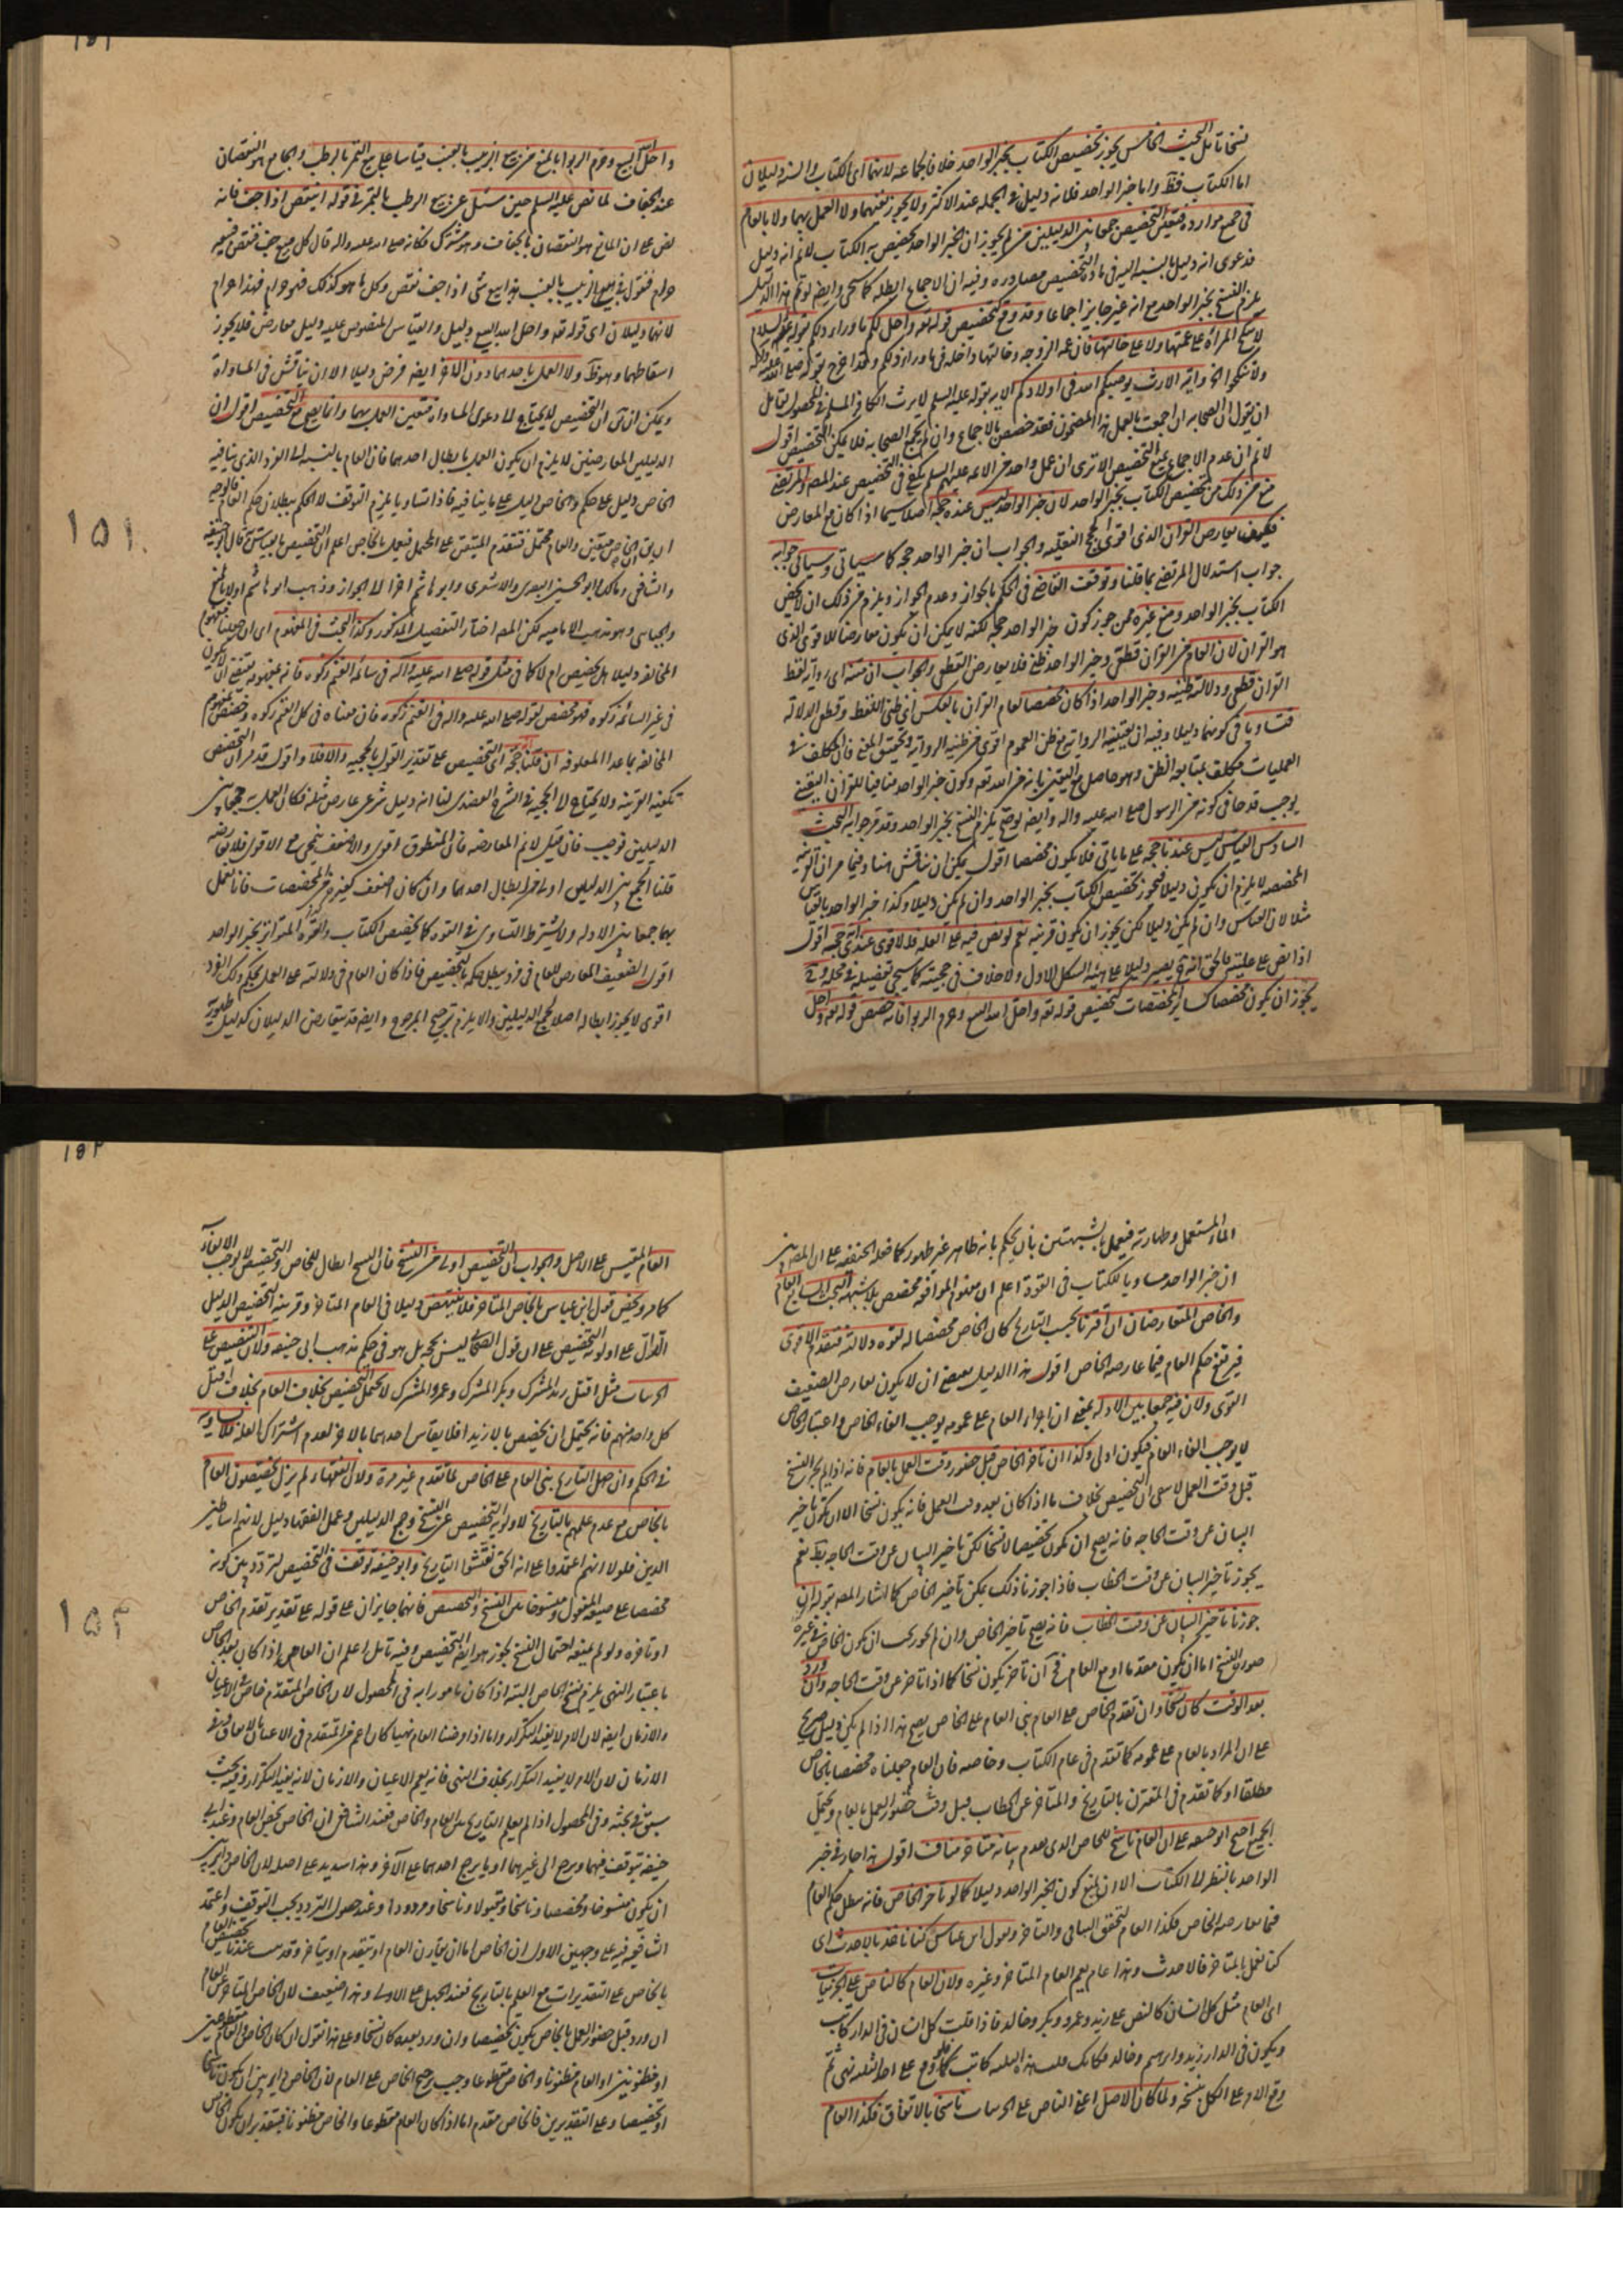 نسخا تأمل البحث الخامس يجوز تخصيص الكتاب بخبر الواحد خلافا لجماعه لانهما اى الكتاب والسنه دليلان
اما الكتاب فظ واما خبر الواحد فلانه دليل فى الجمله عند الاكثر ولا يجوز نفيهما ولا العمل بهما ولا بالعام
فى جميع موارده فتعين التخصيص جمعا بين الدليلين
فدعوى انه دليل بالنسبه اليه فى ماده التخصيص مصادره وفيه ان الاجماع ابطله كما سيجى وايضا لو تم هذا الدليل
يلزم النسخ بخبر الواحد مع انه غير جايز اجماعا وقد وقع تخصيص قوله تعه واحل لكم ما وراء ذلكم بقوله عليه السلام
لا تنكح المرأة على عمتها ولا على خالتها فان عمه الزوجه وخالتها داخله فى ما وراء ذلكم
وآية الارث يوصيكم الله فى اولادكم الاية بقوله عليه السلم لا يرث الكافر المسلم
ان يقول ان الصحابه ان اجمعت بالعمل بهذا المضمون فقد خصص بالاجماع وان لم يجمع الصحابه فلا يمكن التخصيص اقول
لا نم ان عدم الاجماع يمنع التخصيص الا ترى ان عمل واحد من الائمه عليهم السلم يكفى فى التخصيص عند المصه والمرتضى
منع من ذلك من تخصيص الكتاب بخبر الواحد لان خبر الواحد ليس عنده حجه اصلا سيما اذا كان مع المعارض
فكيف يعارض القران الذى اقوى الحجج النقليه والجواب ان خبر الواحد حجه كما سياتى وسياتى جوابه
جواب استدلال المرتضى بما قلنا وتوقف القاضى فى الحكم بالجواز وعدم الجواز ويلزم من ذلك ان لا يخص
الكتاب بخبر الواحد ومنع غيره ممن جوز كون خبر الواحد حجه لكنه لا يمكن ان يكون معارضا للاقوى الذى
هو القران لان العام من القران قطعى وخبر الواحد ظنى فلا يعارض القطعى والجواب ان متنه اى رواية لفظ
القران قطعى ودلالته ظنيه وخبر الواحد اذا كان مخصصا لعام القران بالعكس اى ظنى اللفظ وقطعى الدلاله
فتساويا فى كونهما دليلا وفيه ان يقينية الرواية مع ظن العموم اقوى من ظنيه الروايه وتحقيق المعنى فان المكلف فى
العمليات مكلف بمتابعه الظن وهو حاصل مع اليقين بانه من الله تعه وكون خبر الواحد منافيا للقران اليقينى
يوجب قدحا فى كونه من الرسول صلى الله عليه واله وايضا لو صح يلزم النسخ بخبر الواحد وقد مر جوابه البحث
السادس القياس ليس عندنا حجه على ما ياتى فلا يكون مخصصا اقول يمكن ان يناقش هنا وفيما مر ان القرينه
المخصصه لا يلزم ان يكون دليلا فيجوز تخصيص الكتاب بخبر الواحد وان لم يكن دليلا وكذا خبر الواحد بالقياس
مثلا لان القياس وان لم يكن دليلا لكن يجوز ان يكون قرينه نعم لو نص فيه على العله فالاقوى عندى انه حجه اقول
اذا نص على عليته فالحق انه ح يصير دليلا على هيئه الشكل الاول ولا خلاف فى حجيته كما سيجى تفصيله فى محله وح
يجوز ان يكون مخصصا كساير المخصصات كتخصيص قوله تعه واحل الله البيع وحرم الربوا فانه خصص قوله تعه واحل
واحل الله البيع وحرم الربوا بالمنع من بيع الزبيب بالعنب قياسا على بيع التمر بالرطب والجامع هو النقصان
عند الجفاف لما نص عليه السلم حين سئل عن بيع الرطب بالتمر فى قوله اينقص اذا جف فانه
نص على ان المانع هو النقصان بالجفاف وهو مشترك فكانه صلى الله عليه واله قال كل مبيع جف فنقص فبيعه
حرام فنقول فى بيع الزبيب بالعنب هذا بيع شئ اذا جف نقص وكل ما هو كذلك فهو حرام فهذا حرام
لانهما دليلان اى قوله تعه واحل الله البيع دليل والقياس المنصوص عليه دليل معارض فلا يجوز
اسقاطهما وهو ظ ولا العمل باحدهما دون الاخر ايضا فرض دليلا الا ان يناقش فى المساواة
ويمكن ان ان التخصيص لا يحتاج الى دعوى المساواة فتعين العمل بهما وانما يصح مع التخصيص اقول ان
الدليلين المعارضين لا يلزم ان يكون العمل بابطال احدهما فان العام بالنسبه الى الفرد الذى ينافيه
الخاص دليل على حكم والخاص دليل على ما ينافيه فاذا تساويا يلزم التوقف لا الحكم ببطلان حكم العام
ان الخاص متيقن والعام محتمل فتقدم المتيقن على المحتمل فيعمل بالخاص اعلم ان التخصيص بالقياس قال ابو حنيفه
والشافعى ومالك وابو الحسين البصرى والاشعرى وابو هاشم اخرا الى الجواز وذهب ابو هاشم اولا بالمنع
والجبائى وهو مذهب الاماميه لكن المصه اختار التفصيل المذكور وكذا البحث فى المفهوم اى ان جعلنا مفهوم
المخالفه دليلا هل يخصص ام لا كما فى مثل قوله صلى الله عليه وآله فى سائمه الغنم زكوه فانه بمفهومه يقتضى ان لا يكون
فى غير السائمه زكوه فهو مخصص لقوله صلى الله عليه واله فى الغنم زكوة فان معناه فى كل الغنم زكوه وخصص بمفهوم
المخالفه بما عدا المعلوفه ان قلنا انه حجه اى التخصيص على تقدير القول بالحجيه والا فلا واقول قد مر ان التخصيص
تكفيه القرينه ولا يحتاج الى الحجيه فى الشرع العضدى لنا انه دليل شرعى عارض مثله فكان العمل به جمعا بين
الدليلين فوجب فان قيل لا نم المعارضه فان المنطوق اقوى والاضعف ينمحى مع الاقوى فلا يعارضه
قلنا الجمع بين الدليلين اولى من ابطال احدهما وان كان اضعف كغيره من المخصصات فانا نعمل
بهما جمعا بين الادله ولا يشترط التساوى فى القوه كما يخصص الكتاب والخبر المتواتر بخبر الواحد
اقول الضعيف المعارض للعام فى فرد يبطل حكمه بالتخصيص فاذا كان العام فى دلالته على العمل بحكم ذلك الفرد
اقوى لا يجوز ابطاله اصلا لجمع الدليلين والا يلزم ترجيح المرجوح وايضا قد يتعارض الدليلان كدليل طهورية
١٥١
الماء المستعمل وطهارته فيعمل بالشبهتين بان يحكم بانه طاهر غير طهور كما فعله الحنفيه على ان المصه بين
ان خبر الواحد مساويا للكتاب فى القوة اعلم ان مفهوم الموافقه مخصص بلا شبهه البحث السابع العام
والخاص المتعارضان ان اقترنا بحسب التاريخ كان الخاص مخصصا له لقوه دلالته فتقدم الاقوى
فيرتفع حكم العام فيما عارضه الخاص اقول هذا الدليل يقتضى ان لا يكون يعارض الضعيف
القوى ولان فيه جمعا بين الادله بمعنى ان اجراء العام على عمومه يوجب الغاء الخاص واعتبار الخاص
لا يوجب الغاء العام فيكون اولى وكذا ان تاخر الخاص قبل حضور وقت العمل بالعام فانه اذا لم يجز النسخ
قبل وقت العمل لا يبقى الا التخصيص بخلاف ما اذا كان بعد وقت العمل فانه يكون نسخا الا ان يكون تاخير
البيان عن وقت الحاجه فانه يصح ان يكون تخصيصا لا نسخا لكن تاخير البيان عن وقت الحاجه بط نعم
يجوز تاخير البيان عن وقت الخطاب فاذا جوزنا ذلك يمكن تاخير الخاص كما اشار المصه بقوله ان
جوزنا تاخير البيان عن وقت الخطاب فانه يصح تاخير الخاص وان لم نجوز يجب ان يكون الخاص فى غيره
صورة النسخ اما ان يكون مقدما او مع العام فح ان تاخر يكون نسخا كما اذا تاخر عن وقت الحاجه وان ورد
بعد الوقت كان نسخا وان تقدم الخاص على العام بنى العام على الخاص يصح هذا اذا لم يكن دليل صريح
على ان المراد بالعام على عمومه كما تقدم فى عام الكتاب وخاصه فان العام جعلناه مخصصا بالخاص
مطلقا او كما تقدم فى المقترن بالتاريخ والمتاخر عن الخطاب قبل وقت حضور العمل بالعام ويحتمل
الجميع احتج ابو حنيفه على ان العام ناسخ للخاص الذى تقدم بانه متاخر مناف اقول هذا جار فى خبر
الواحد بالنظر الى الكتاب الا ان يمنع كون الخبر الواحد دليلا كما لو تاخر الخاص فانه يبطل حكم العام
فيما يعارضه الخاص فكذا العام لتحقق التنافى والتاخر وبقول ابن عباس كنا ناخذ بالاحدث اى
كنا نعمل بالمتاخر فالاحدث وهذا عام يعم العام المتاخر وغيره ولان العام كالناص على الجزئيات
اى العام مثل كل انسان كالنص على زيد وعمرو وبكر وخالد فاذا قلت كل انسان فى الدار كاتب
ويكون فى الدار زيد وابرهيم وخالد فكانك قلت هذه الثلثه كاتب فكما لو وقع على احد الثلثه نهى ثم
وقع الامر على الكل نسخه ولما كان الاصل اعنى الناص على الجزئيات ناسخا بالاتفاق فكذا العام
العام المقيس على الاصل والجواب ان التخصيص اولى من النسخ فان النسخ ابطال للخاص والتخصيص لا يوجب الالغاء
كما مر ويخص قول ابن عباس بالخاص المتاخر فلا ينتهض دليلا فى العام المتاخر وقرينه التخصيص الدليل
الدال على اولوية التخصيص على ان قول الصحابى ليس بحجه بل هو فى حكم مذهب ابى حنيفه ولان التنصيص على
الجزئيات مثل اقتل زيد المشرك وبكر المشرك وعمرو المشرك لا يحتمل التخصيص بخلاف العام بخلاف اقتل
كل واحد منهم فانه يحتمل ان يخصص بالا زيد افلا يقاس احدهما بالاخر لعدم اشتراك العله فلا يساويه
فى الحكم وان جهل التاريخ بنى العام على الخاص لما تقدم غير مرة ولان الفقهاء لم يزل يخصصون العام
بالخاص مع عدم علمهم بالتاريخ لاولوية التخصيص عن النسخ وجمع الدليلين وعمل الفقهاء دليل لانهم اساطين
الدين فلولا انهم اعتمدوا على انه الحق لفتشوا التاريخ وابو حنيفه توقف فى التخصيص لتردده بين كونه
مخصصا على صيغه المفعول ومنسوخا بين النسخ والتخصيص فانهما جايزان على قوله على تقدير تقدم الخاص
او تاخره ولو لم يمنعه احتمال النسخ يجوز هو ايضا التخصيص وفيه تامل اعلم ان العام اذا كان بعد الخاص
باعتبار النهى يلزم نسخ الخاص البتة اذا كان مامورا به فى المحصول لان الخاص المتقدم خاص فى الاعيان
والازمان ايضا لان الامر لا يفيد التكرار واما اذا فرضنا العام نهيا كان اعم من المتقدم فى الاعيان بالاتفاق وفى
الازمان لان الامر لا يفيد التكرار بخلاف النهى فانه يعم الاعيان والازمان لانه يفيد التكرار وفيه بحث
سبق فى بحثه وفى المحصول اذا لم يعلم التاريخ بين العام والخاص فعند الشافعى ان الخاص يخص العام وعند ابى
حنيفه يتوقف فيهما ويرجع الى غيرهما او ما يرجح احدهما على الآخر وهذا سديد على اصله لان الخاص دائر بين
ان يكون منسوخا ومخصصا وناسخا ومقبولا وناسخا ومردودا وعند حصول التردد يجب التوقف واعتمد
الشافعيه فيه على وجهين الاول ان الخاص اما ان يقارن العام او يتقدم او يتاخر وقد ثبت عندنا تخصيص العام
بالخاص على التقديرات مع العلم بالتاريخ فعند الجهل على الاولى وهذا ضعيف لان الخاص المتاخر عن العام
ان ورد قبل حضور العمل بالخاص يكون تخصيصا وان ورد بعده كان نسخا وعلى هذا نقول ان كان الخاص والعام مقطوعين
او مظنونين او العام مظنونا والخاص مقطوعا وجب ترجيح الخاص على العام لان الخاص دائر بين ان يكون ناسخا
او تخصيصا وعلى التقديرين فالخاص مقدم اما اذا كان العام مقطوعا والخاص مظنونا فبتقدير ان يكون الخاص
١٥٢